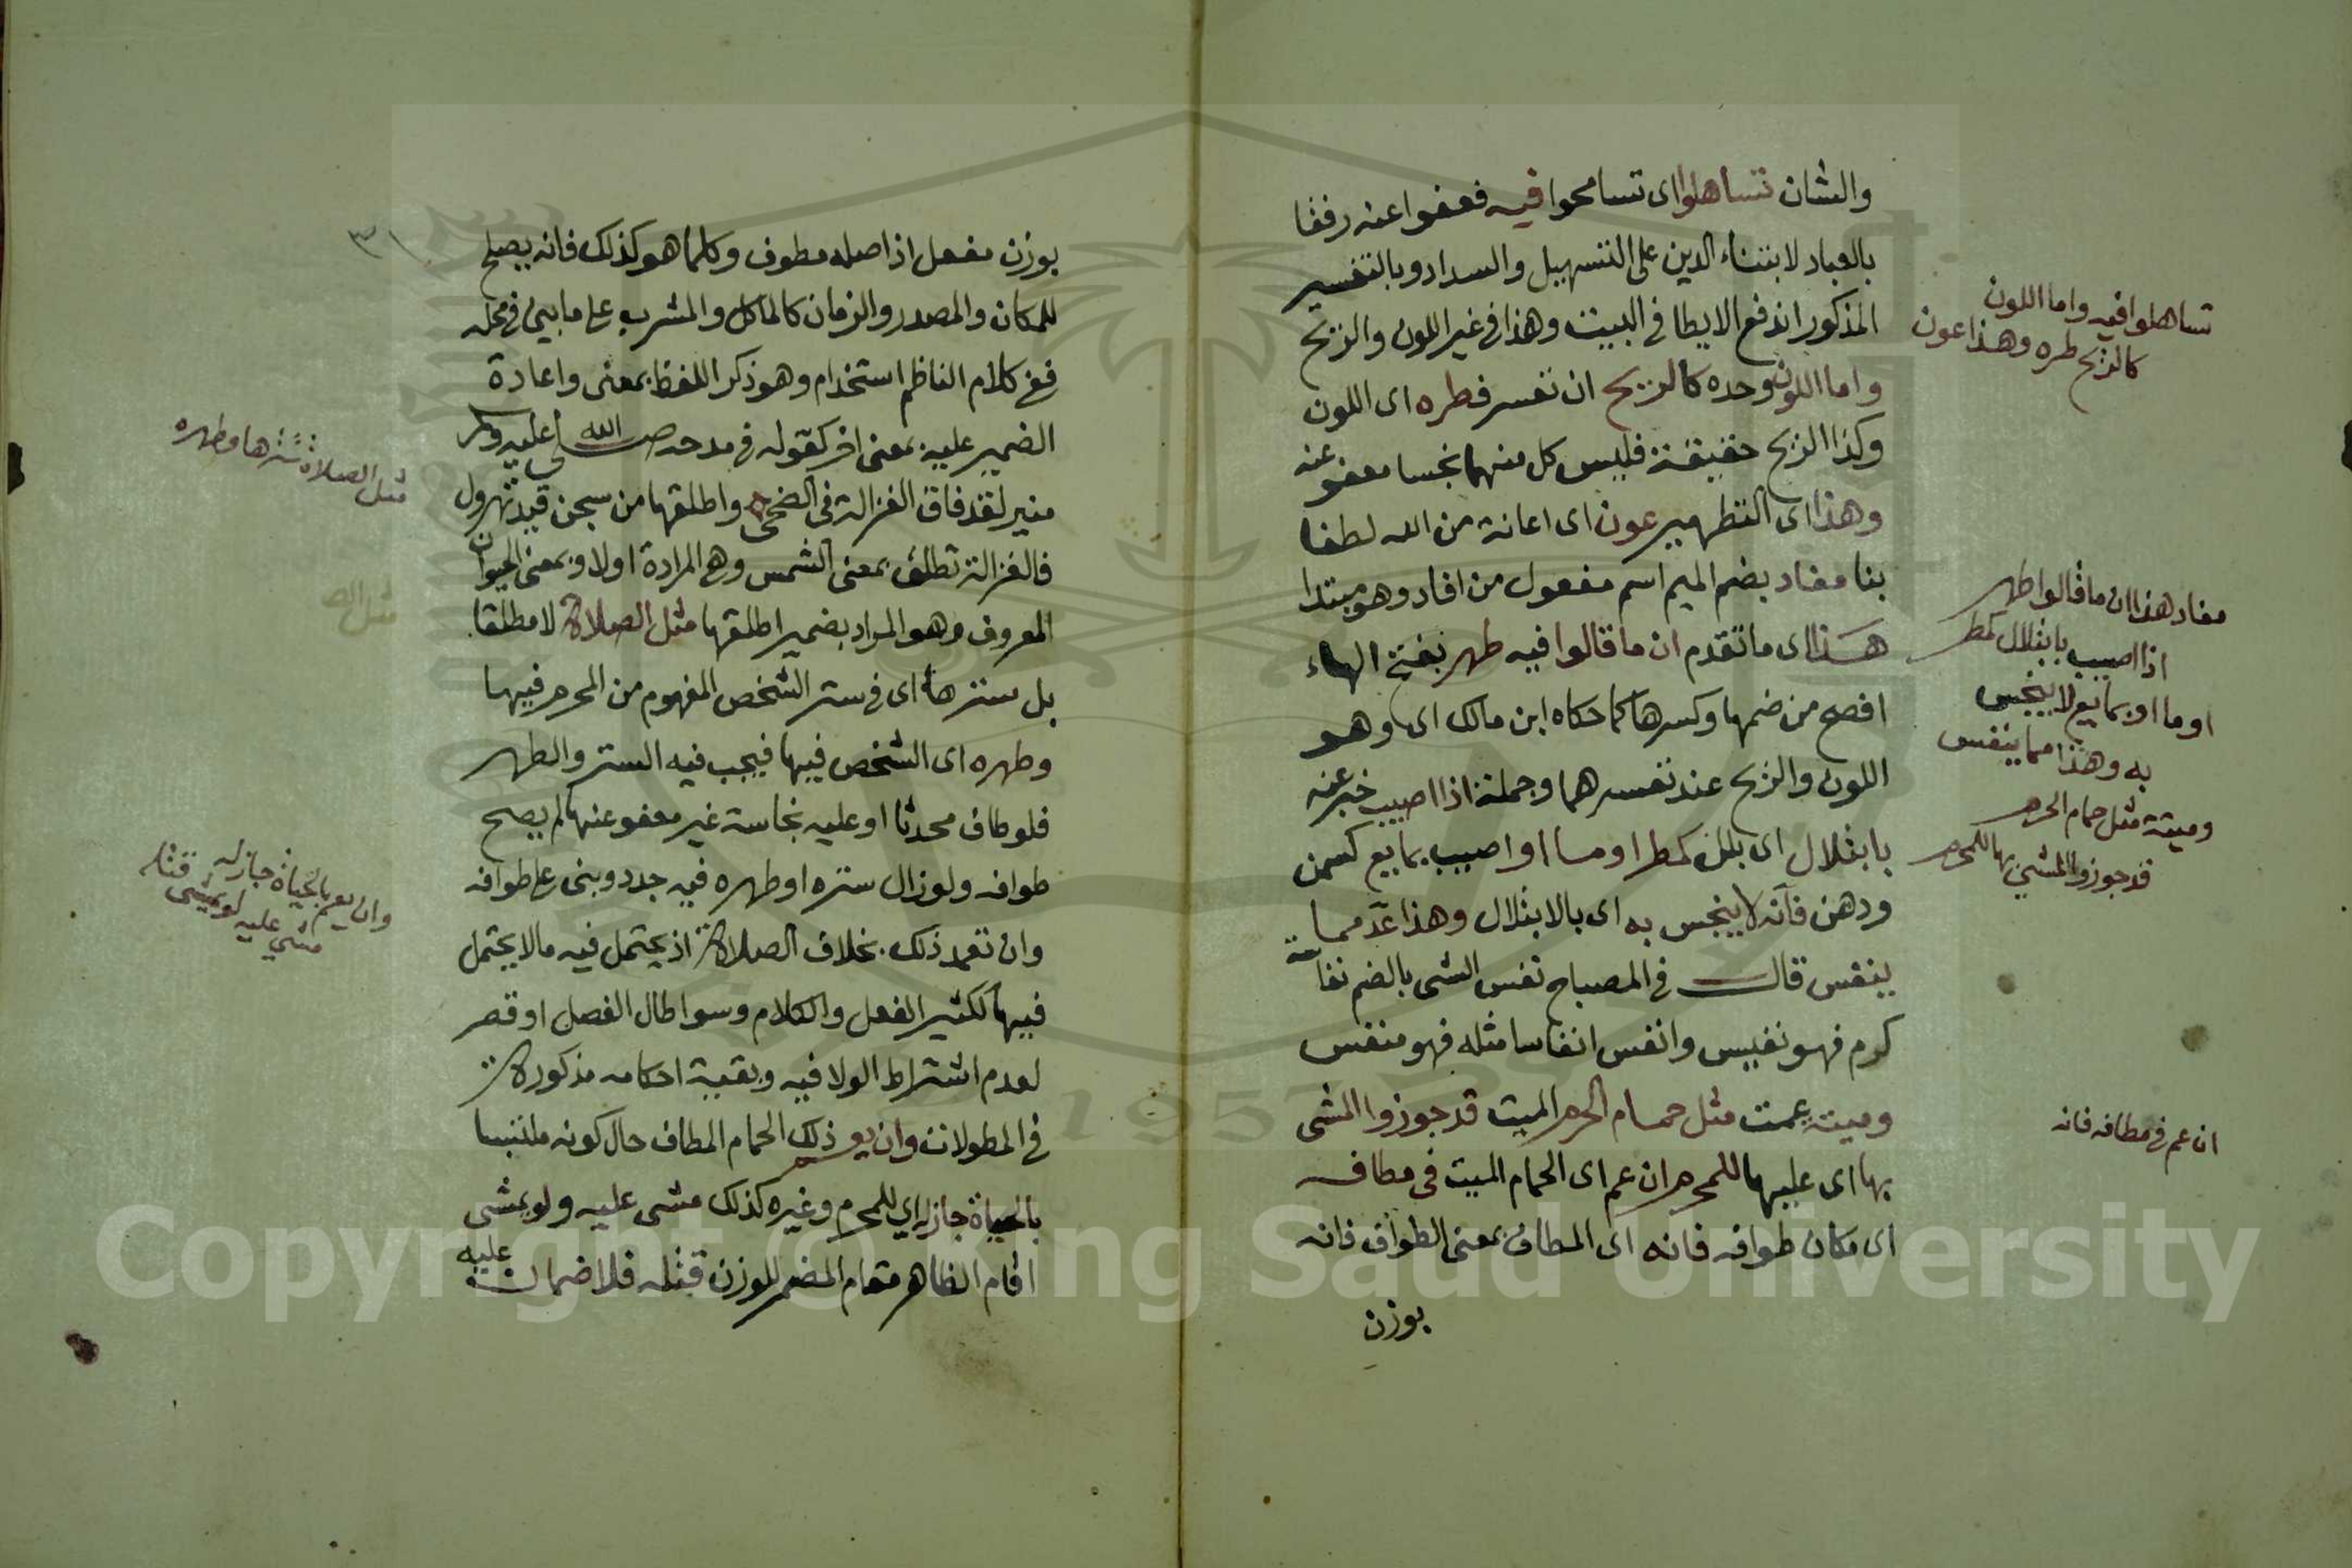 والشان تساهلوا اى تسامحوا فيه فعفوا عنه رفقا
بالعباد لابتناء الدين على التسهيل والسداد وبالتفسير
المذكور اندفع الايطا فى البيت وهذا فى غير اللون والريح
واما اللون وحده كالريح ان تعسر فطره اى اللون
وكذا الريح حقيقة فليس كل منهما نجسا معفو عنه
وهذا اى التطهير عون اى اعانة من الله لطفا
بنا مفاد بضم الميم اسم مفعول من افاد وهو مبتدا
هذا اى ما تقدم ان ما قالوا فيه طهر بفتح الهاء
افصح من ضمها وكسرها كما حكاه ابن مالك اى وهو
اللون والريح عند تعسرهما وجملة اذا اصيب خبر عنه
بابتلال اى بلل كمطر او ما او اصيب بمايع كسمن
ودهن فانه لا ينجس به اى بالابتلال وهذا عد مما
ينفس قال فى المصباح نفس الشى بالضم نفاسة
كرم فهو نفيس وانفس انفاسا مثله فهو منفس
وميتة عمت مثل حمام الحرم الميت قد جوزوا المشى
بها اى عليها للمحرم ان عم اى الحمام الميت فى مطافه
اى مكان طوافه فانه اى المطاف بمعنى الطواف فانه
بوزن
تساهلوا فيه واما اللون
كالريح طره وهذا عون
مفاد هذا ان ما قالوا طهر
اذا اصيب بابتلال كمطر
او ما او بمايع لا ينجس
به وهذا مما ينفس
وميتة مثل حمام الحرم
قد جوزوا المشي بها للمحرم
ان عم فى مطافه فانه
٣١
بوزن مفعل اذ اصله مطوف وكلما هو كذلك فانه يصلح
للمكان والمصدر والزمان كالماكل والمشرب على ما بين فى محله
ففى كلام الناظم استخدام وهو ذكر اللفظ بمعنى واعادة
الضمير عليه بمعنى اخر كقوله فى مدحه صلى الله عليه وسلم
منير لقد فاق الغزالة فى الضحى واطلقها من سجن قيد تهرول
فالغزالة تطلق بمعنى الشمس وهى المرادة اولا وبمعنى الحيوان
المعروف وهو المراد بضمير اطلقها مثل الصلاة لا مطلقا
بل سترها اى فى ستر الشخص المفهوم من المحرم فيها
وطهره اى الشخص فيها فيجب فيه الستر والطهر
فلو طاف محدثا او عليه نجاسة غير معفو عنها لم يصح
طوافه ولو زال ستره او طهره فيه جدد وبنى على طوافه
وان تعمد ذلك بخلاف الصلاة اذ يحتمل فيه مالا يحتمل
فيها ككثير الفعل والكلام وسوا طال الفصل او قصر
لعدم اشتراط الولا فيه وبقية احكامه مذكورة
فى المطولات وان يعم ذلك الحمام المطاف حال كونه ملتبسا
بالحياة جاز له اي للمحرم وغيره كذلك مشى عليه ولو بمشى
اقام الظاهر مقام المضمر للوزن قتله فلا ضمان عليه
مثل الصلاة سترها وطهره
مثل الص
وان يعم بالحياة جاز له
مشي عليه لو بمشى قتله
Copyright © King Saud University
1957